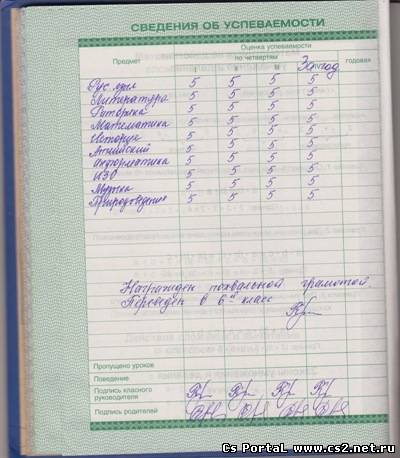 СВЕДЕНИЯ ОБ УСПЕВАЕМОСТИ
Предмет
Оценка успеваемости
по четвертям
годовая
I II III За год
Рус. язык 5 5 5 5
Литература 5 5 5 5
Риторика 5 5 5 5
Математика 5 5 5 5
История 5 5 5 5
Английский 5 5 5 5
Информатика 5 5 5 5
ИЗО 5 5 5 5
Музыка 5 5 5 5
Природоведение 5 5 5 5
Награжден похвальной грамотой.
Переведен в 6 класс
Пропущено уроков
Поведение
Подпись классного руководителя
Подпись родителей
Cs PortaL www.cs2.net.ru